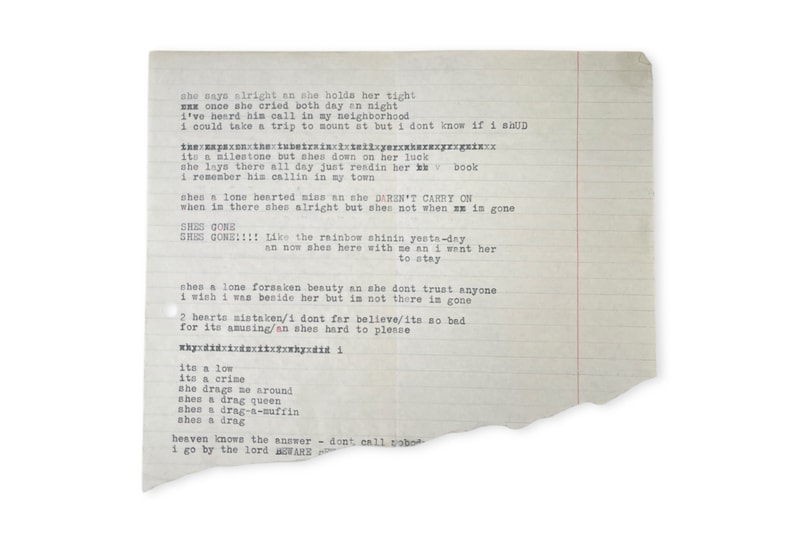 she says alright an she holds her tight
once she cried both day an night
i've heard him call in my neighborhood
i could take a trip to mount st but i dont know if i shUD
its a milestone but shes down on her luck
she lays there all day just readin her book
i remember him callin in my town
shes a lone hearted miss an she DAREN'T CARRY ON
when im there shes alright but shes not when im gone
SHES GONE
SHES GONE!!!! Like the rainbow shinin yesta-day
an now shes here with me an i want her
to stay
shes a lone forsaken beauty an she dont trust anyone
i wish i was beside her but im not there im gone
2 hearts mistaken/i dont far believe/its so bad
for its amusing/an shes hard to please
why did i do it? why did i
its a low
its a crime
she drags me around
shes a drag queen
shes a drag-a-muffin
shes a drag
heaven knows the answer - dont call nobod
i go by the lord BEWARE